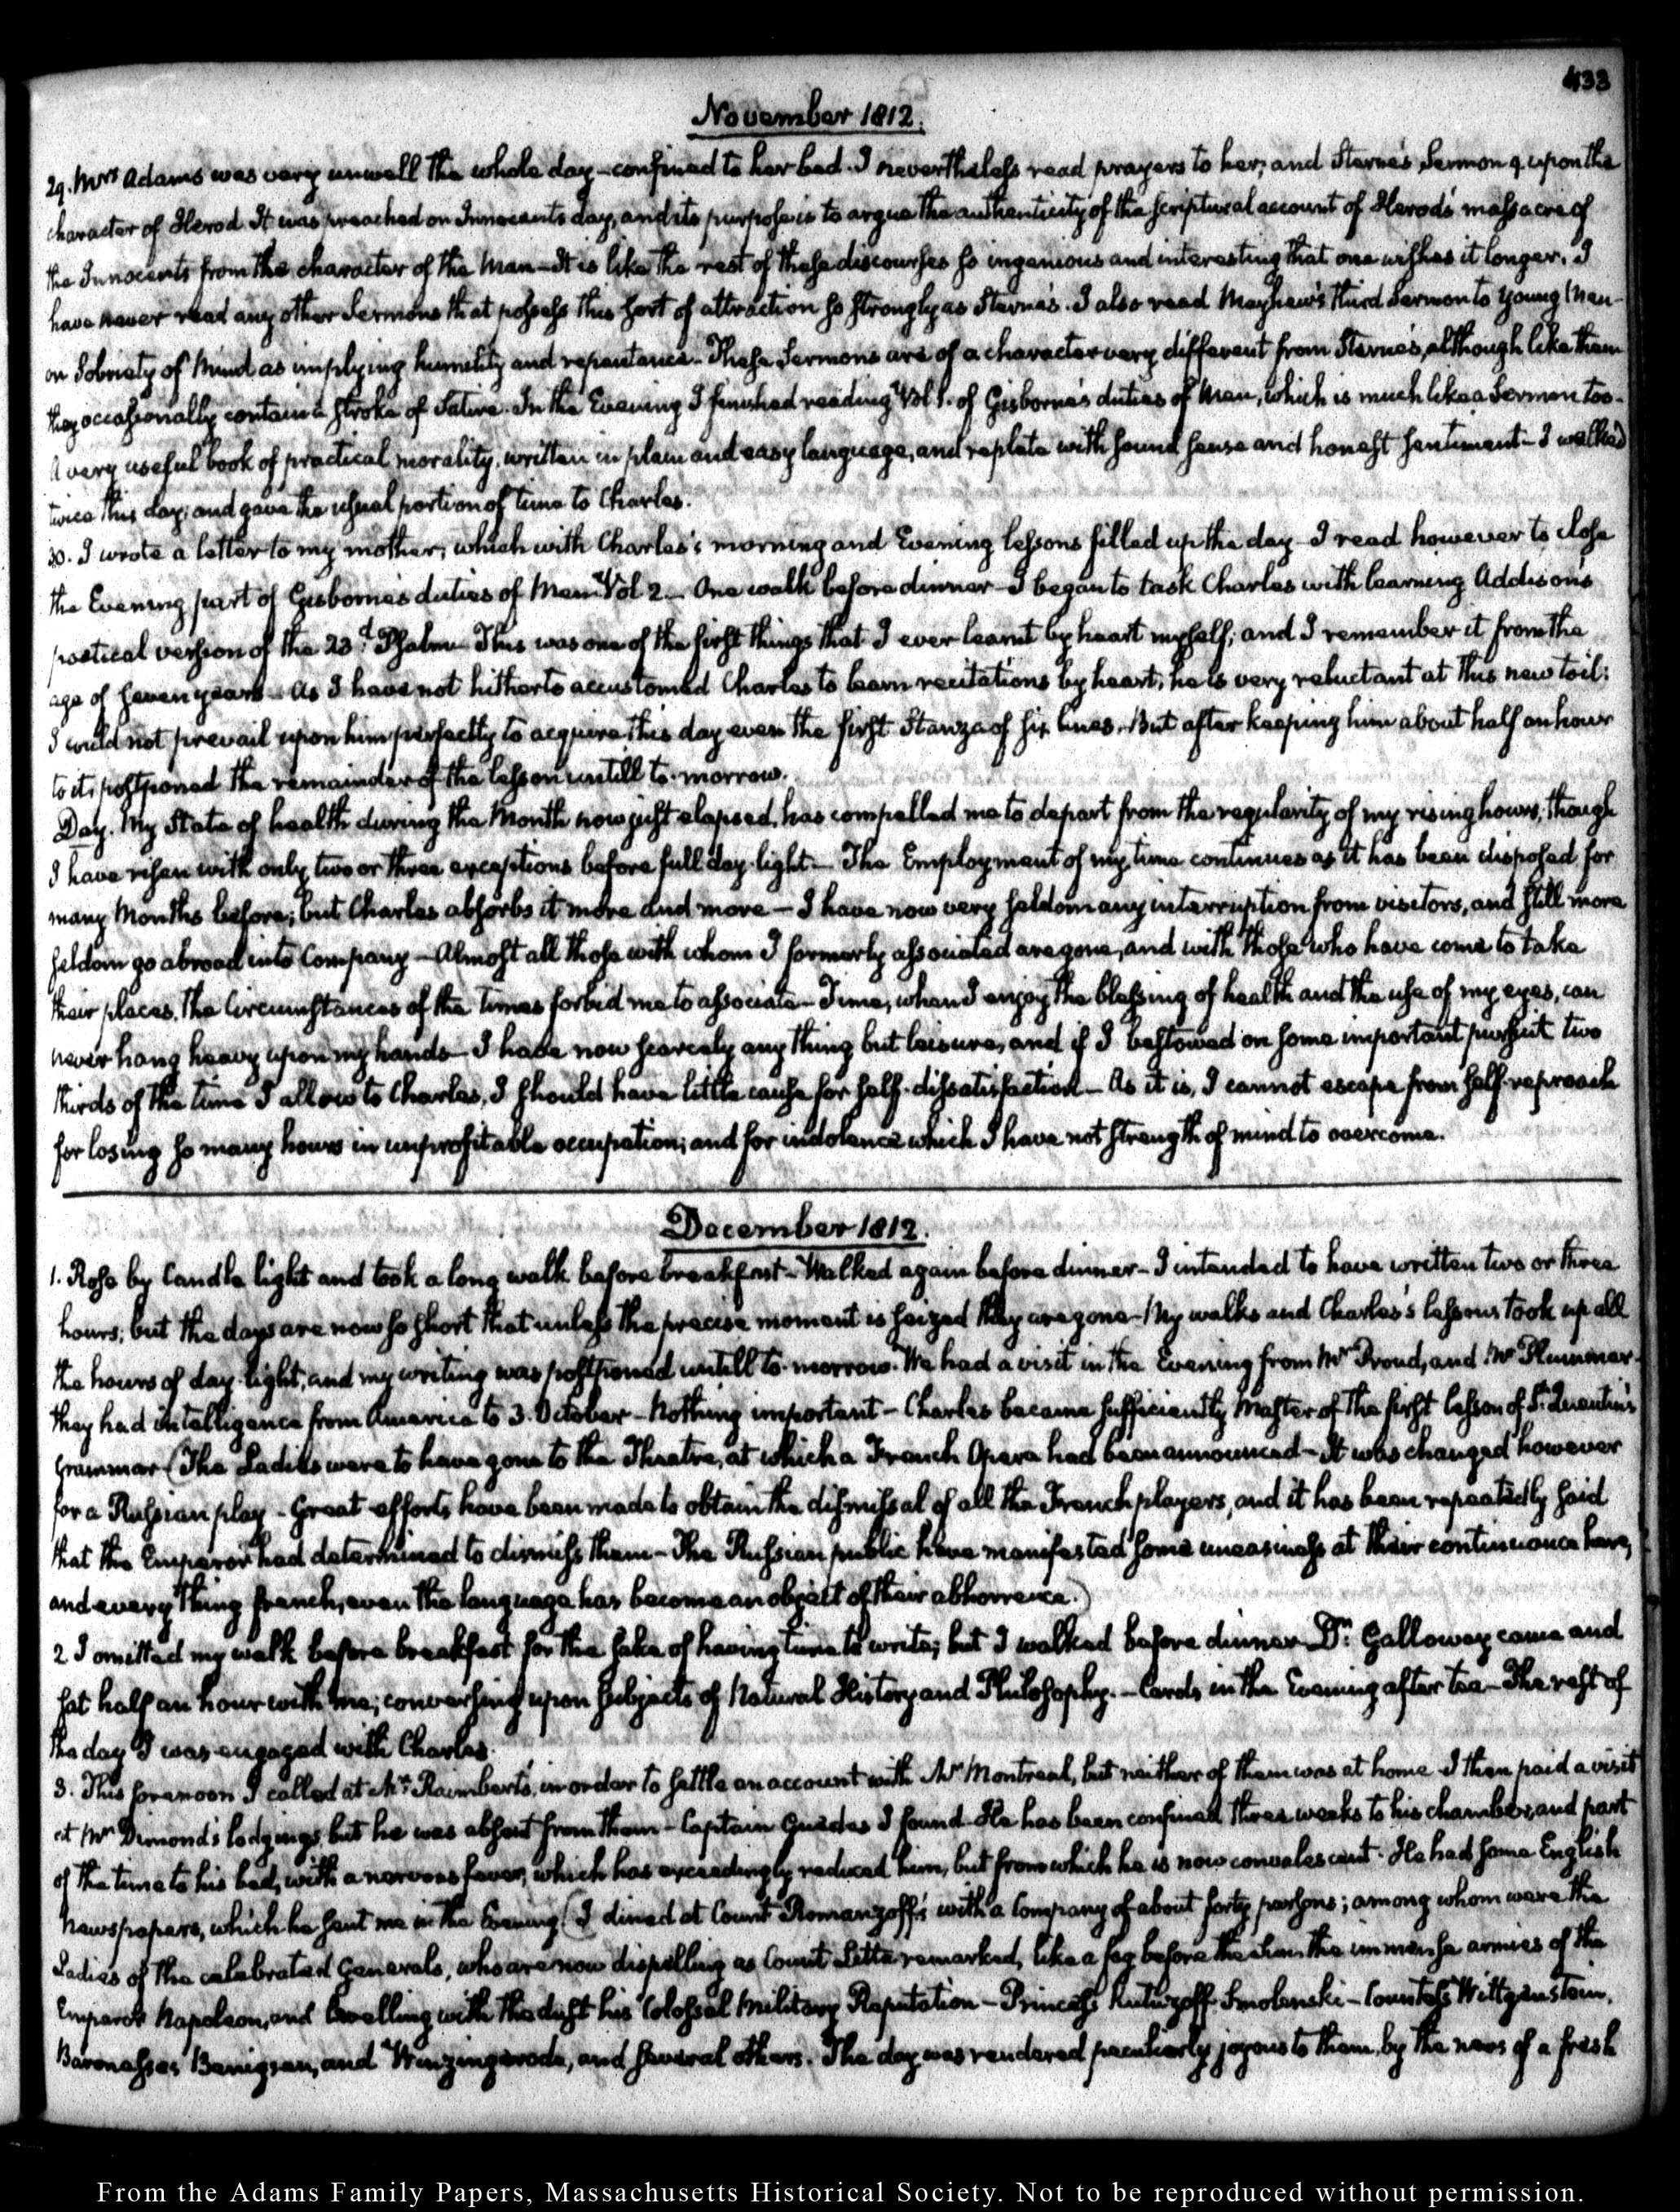 433
November 1812.
29. Mrs Adams was very unwell the whole day - confined to her bed. I nevertheless read prayers to her; and Sterne's Sermon 9. upon the
character of Herod. It was preached on Innocents day, and its purpose is to argue the authenticity of the scriptural account of Herod's massacre of
the Innocents from the character of the Man - It is like the rest of these discourses so ingenious and interesting that one wishes it longer. I
have never read any other Sermons that possess this sort of attraction so strongly as Sterne's. I also read Mayhew's third Sermon to Young Men -
on Sobriety of Mind as implying humility and repentance - These Sermons are of a character very different from Sterne's, although like them
they occasionally contain a stroke of Satire. In the Evening I finished reading Vol 1. of Gisborne's duties of Man, which is much like a Sermon too -
A very useful book of practical morality, written in plain and easy language, and replete with sound sense and honest sentiment - I walked
twice this day; and gave the usual portion of time to Charles.
30. I wrote a letter to my mother; which with Charles's morning and Evening lessons filled up the day - I read however to close
the Evening part of Gisborne's duties of Man Vol 2. - One walk before dinner - I began to task Charles with learning Addison's
poetical version of the 23d. Psalm - This was one of the first things that I ever learnt by heart myself; and I remember it from the
age of seven years - As I have not hitherto accustomed Charles to learn recitations by heart; he is very reluctant at this new toil:
I could not prevail upon him perfectly to acquire this day even the first Stanza of six lines. But after keeping him about half an hour
to it, postponed the remainder of the lesson untill to-morrow.
Day. My State of health during the Month now just elapsed, has compelled me to depart from the regularity of my rising hours; though
I have risen with only two or three exceptions before full day-light - The Employment of my time continues as it has been disposed for
many Months before; but Charles absorbs it more and more - I have now very seldom any interruption from visitors, and still more
seldom go abroad into Company - Almost all those with whom I formerly associated are gone, and with those who have come to take
their places, the Circumstances of the times forbid me to associate - Time, when I enjoy the blessing of health and the use of my eyes, can
never hang heavy upon my hands - I have now scarcely any thing but leisure, and if I bestowed on some important pursuit two
thirds of the time I allow to Charles, I should have little cause for self-dissatisfaction - As it is, I cannot escape from self-reproach
for losing so many hours in unprofitable occupation; and for indolence which I have not strength of mind to overcome.
December 1812.
1. Rose by Candle light and took a long walk before breakfast - Walked again before dinner - I intended to have written two or three
hours; but the days are now so short that unless the precise moment is seized they are gone - My walks and Charles's lessons took up all
the hours of day-light, and my writing was postponed untill to-morrow. We had a visit in the Evening from Mr Proud, and Mr Plummer -
they had intelligence from America to 3. October - Nothing important - Charles became sufficiently Master of the first lesson of St. Quentin's
Grammar (The Ladies were to have gone to the Theatre, at which a French Opera had been announced - It was changed however
for a Russian play - Great efforts have been made to obtain the dismissal of all the French players, and it has been repeatedly said
that the Emperor had determined to dismiss them - The Russian public have manifested some uneasiness at their continuance here,
and every thing french, even the language has become an object of their abhorrence.)
2 I omitted my walk before breakfast for the sake of having time to write; but I walked before dinner - Dr. Galloway came and
sat half an hour with me; conversing upon subjects of Natural History and Philosophy. - Cards in the Evening after tea - The rest of
the day I was engaged with Charles.
3. This forenoon I called at Mr. Raimbert's, in order to settle an account with Mr Montreal, but neither of them was at home - I then paid a visit
at Mr Dimond's lodgings, but he was absent from them - Captain Guedes I found - He has been confined three weeks to his chamber, and part
of the time to his bed, with a nervous fever, which has exceedingly reduced him, but from which he is now convalescent. He had some English
Newspapers, which he sent me in the Evening (I dined at Count Romanzoff's with a Company of about forty persons; among whom were the
Ladies of the celebrated Generals, who are now dispelling as Count Litta remarked, like a fog before the Sun the immense armies of the
Emperor Napoleon, and levelling with the dust his Colossal Military Reputation - Princess Kutuzoff-Smolenski - Countess Wittgenstein,
Baronesses Benigsen, and Winzingerode, and several others. The day was rendered peculiarly joyous to them, by the news of a fresh
From the Adams Family Papers, Massachusetts Historical Society. Not to be reproduced without permission.